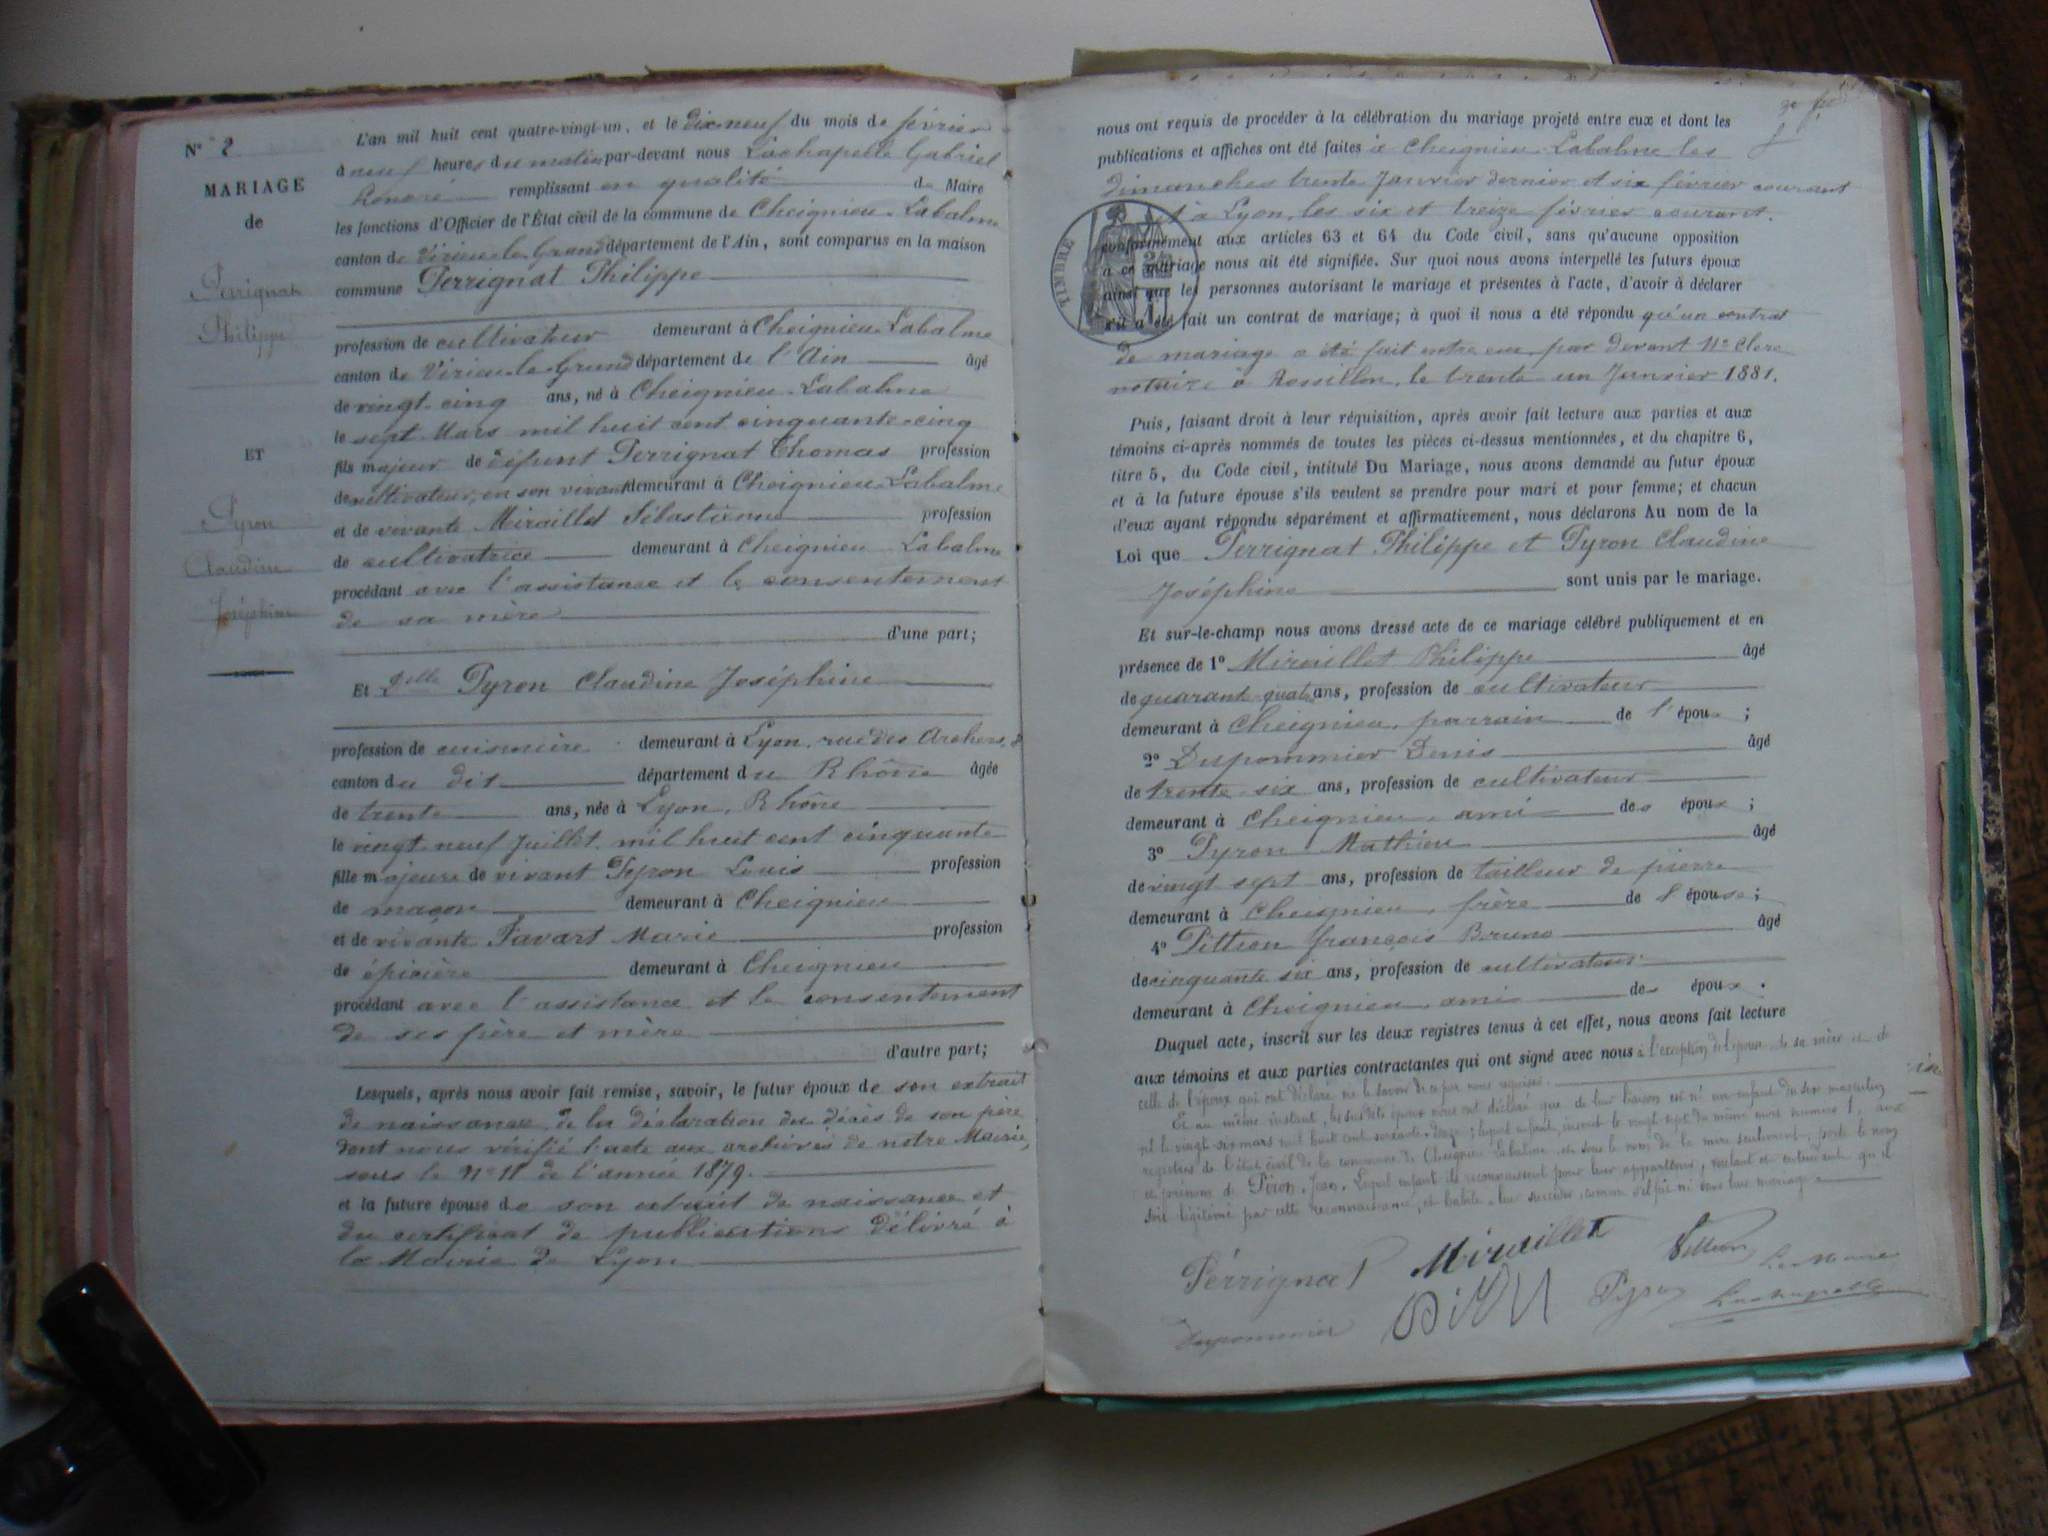 N° 2
MARIAGE
de
Perrignat
Philippe
ET
Pyron
Claudine
Joséphine
L'an mil huit cent quatre-vingt-un, et le dix-neuf du mois de février
à neuf heures du matin par-devant nous Lachapelle Gabriel
Honoré remplissant en qualité de Maire
les fonctions d'Officier de l'État civil de la commune de Cheignieu-Labalme
canton de Virieu-le-Grand département de l'Ain, sont comparus en la maison
commune Perrignat Philippe
profession de cultivateur demeurant à Cheignieu-Labalme
canton de Virieu-le-Grand département de l'Ain âgé
de vingt-cinq ans, né à Cheignieu-Labalme
le sept Mars mil huit cent cinquante-cinq
fils majeur de défunt Perrignat Thomas profession
de cultivateur, en son vivant demeurant à Cheignieu-Labalme
et de vivante Miraillet Sébastienne profession
de cultivatrice demeurant à Cheignieu Labalme
procédant avec l'assistance et le consentement
de sa mère
d'une part;
Et Delle Pyron Claudine Joséphine
profession de cuisinière demeurant à Lyon, rue des Archers, 8
canton du dit département du Rhône âgée
de trente ans, née à Lyon, Rhône
le vingt-neuf Juillet mil huit cent cinquante
fille majeure de vivant Pyron Louis profession
de maçon demeurant à Cheignieu
et de vivante Favart Marie profession
de épicière demeurant à Cheignieu
procédant avec l'assistance et le consentement
de ses père et mère
d'autre part;
Lesquels, après nous avoir fait remise, savoir, le futur époux de son extrait
de naissance de la déclaration du décès de son père
dont nous vérifié l'acte aux archives de notre Mairie,
sous le N° 11 de l'année 1879.
et la future épouse de son extrait de naissance et
du certificat de publications délivré à
la Mairie de Lyon
nous ont requis de procéder à la célébration du mariage projeté entre eux et dont les
publications et affiches ont été faites à Cheignieu-Labalme les
dimanches trente Janvier dernier et six février courant
et à Lyon, les six et treize février courant.
TIMBRE
conformément aux articles 63 et 64 du Code civil, sans qu'aucune opposition
à ce mariage nous ait été signifiée. Sur quoi nous avons interpellé les futurs époux
ainsi que les personnes autorisant le mariage et présentes à l'acte, d'avoir à déclarer
s'il a été fait un contrat de mariage; à quoi il nous a été répondu qu'un contrat
de mariage a été fait entre eux, par devant Me Clerc
notaire à Rossillon, le trente un Janvier 1881.
Puis, faisant droit à leur réquisition, après avoir fait lecture aux parties et aux
témoins ci-après nommés de toutes les pièces ci-dessus mentionnées, et du chapitre 6,
titre 5, du Code civil, intitulé Du Mariage, nous avons demandé au futur époux
et à la future épouse s'ils veulent se prendre pour mari et pour femme; et chacun
d'eux ayant répondu séparément et affirmativement, nous déclarons Au nom de la
Loi que Perrignat Philippe et Pyron Claudine
Joséphine sont unis par le mariage.
Et sur-le-champ nous avons dressé acte de ce mariage célébré publiquement et en
présence de 1° Miraillet Philippe âgé
de quarante-quatre ans, profession de cultivateur
demeurant à Cheignieu, parrain de l'époux;
2° Dupommier Denis âgé
de trente-six ans, profession de cultivateur
demeurant à Cheignieu, ami des époux;
3° Pyron Mathieu âgé
de vingt sept ans, profession de tailleur de pierre
demeurant à Cheignieu, frère de l'épouse;
4° Pittion françois Bruno âgé
de cinquante six ans, profession de cultivateur
demeurant à Cheignieu, ami des époux.
Duquel acte, inscrit sur les deux registres tenus à cet effet, nous avons fait lecture
aux témoins et aux parties contractantes qui ont signé avec nous à l'exception de l'épouse, de sa mère et de
celle de l'époux qui ont déclaré ne le savoir de ce par nous requises.
Et au même instant, les susdits époux nous ont déclaré que de leur liaison est né un enfant du sexe masculin
le vingt-six mars mil huit cent soixante-douze; lequel enfant, inscrit le vingt-sept du même mois numéro 1, aux
registres de l'état civil de la commune de Cheignieu Labalme, et sous le nom de la mère seulement, porte le nom
et prénom de Piron, Jean. Lequel enfant ils reconnaissent pour leur appartenir, voulant et entendant qu'il
soit légitimé par cette reconnaissance, et habile à leur succéder, comme s'il fût né dans leur mariage
Perrignat Miraillet Pittion Le Maire
Dupommier Pyron Lachapelle